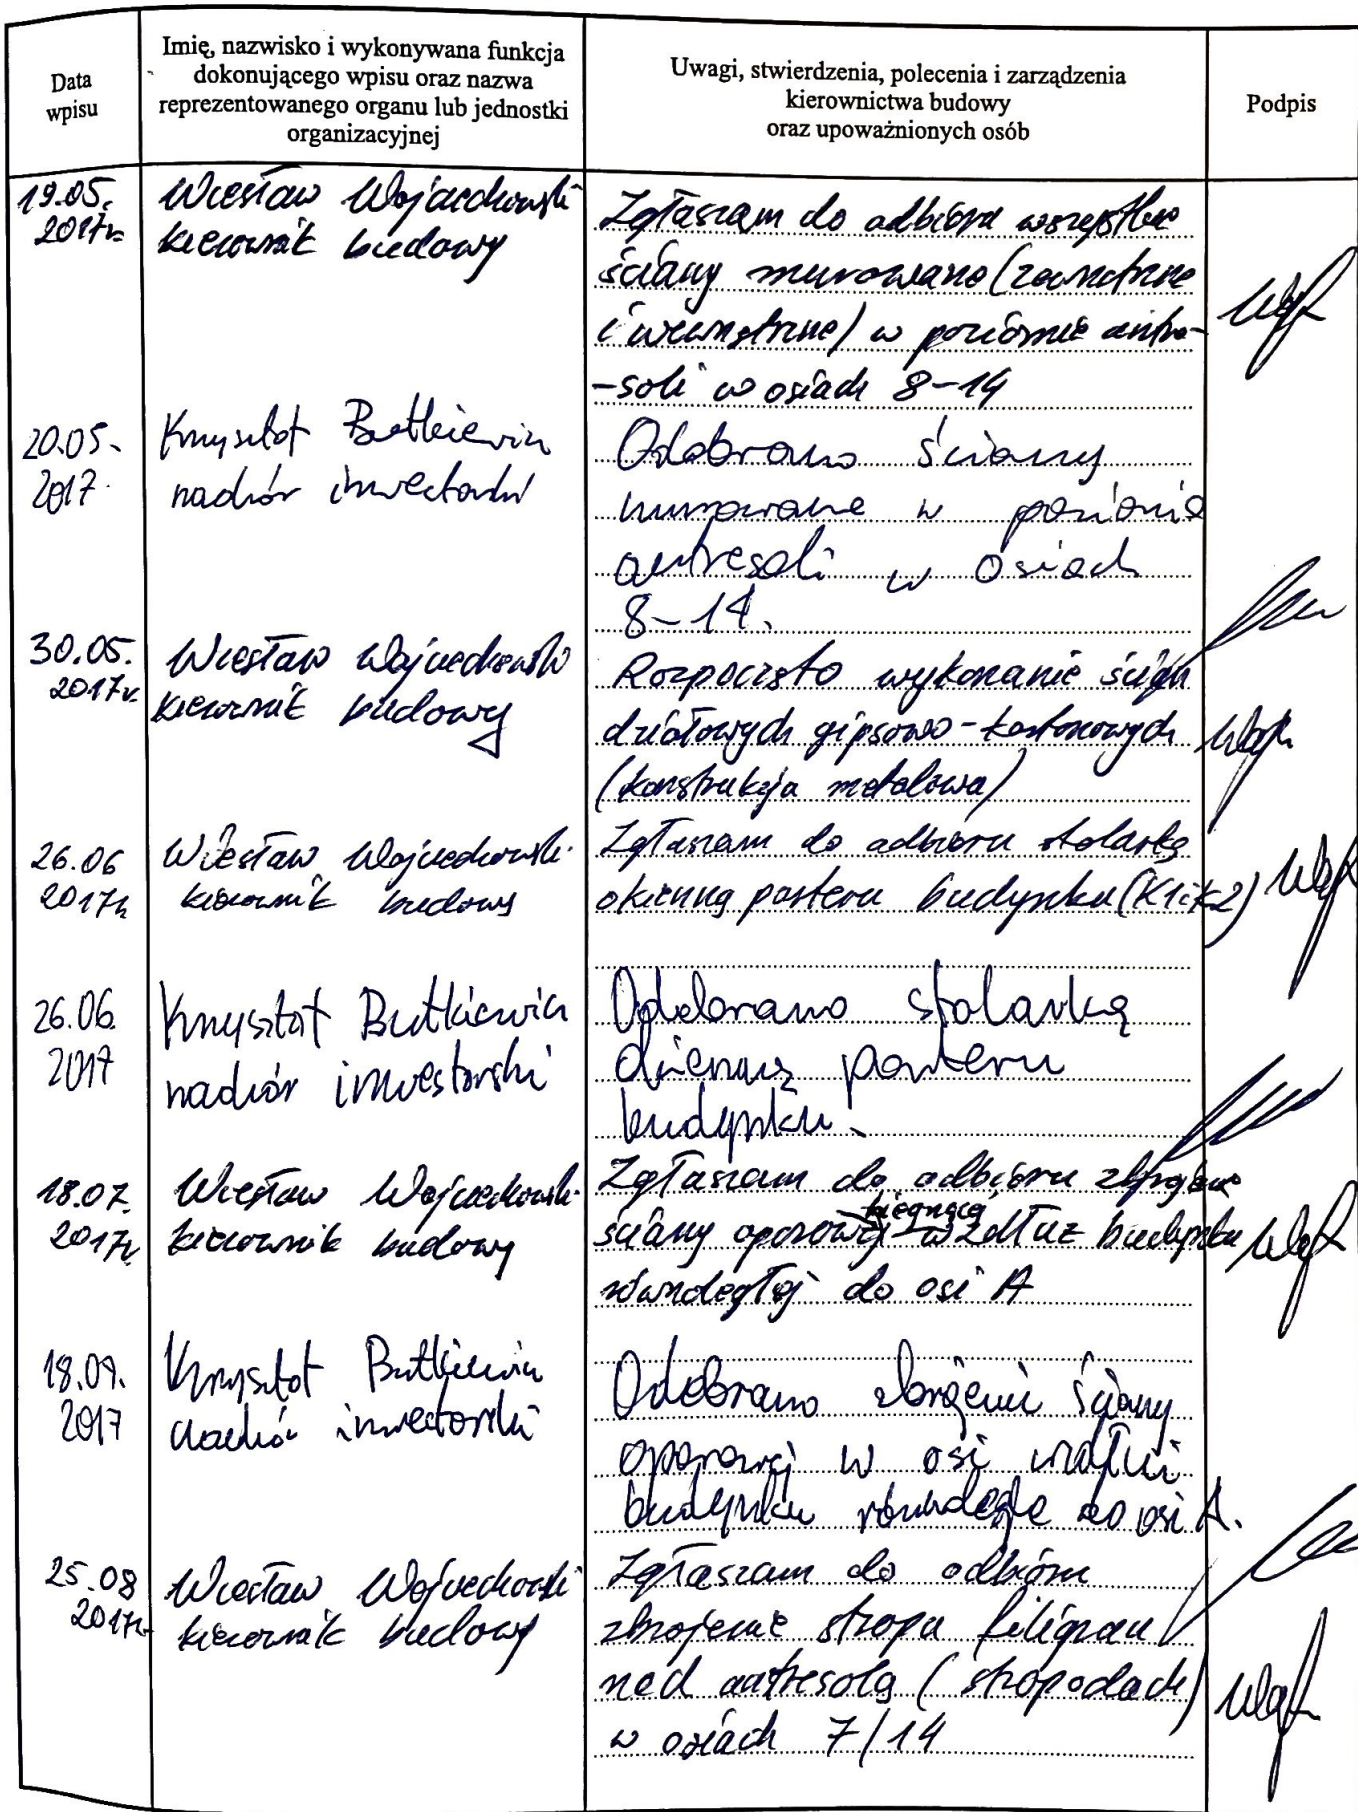 Data
wpisu
Imię, nazwisko i wykonywana funkcja
dokonującego wpisu oraz nazwa
reprezentowanego organu lub jednostki
organizacyjnej
Uwagi, stwierdzenia, polecenia i zarządzenia
kierownictwa budowy
oraz upoważnionych osób
Podpis
19.05.
2017r.
Wiesław Wojciechowski
kierownik budowy
Zgłaszam do odbioru wszystkie
ściany murowane (zewnętrzne
i wewnętrzne) w poziomie antre-
-soli w osiach 8-14
20.05.
2017.
Krzysztof Butkiewicz
nadzór inwestorski
Odebrano ściany
murowane w poziomie
antresoli w osiach
8-14.
30.05.
2017r.
Wiesław Wojciechowski
kierownik budowy
Rozpoczęto wykonanie ścian
działowych gipsowo-kartonowych
(konstrukcja metalowa)
26.06
2017r
Wiesław Wojciechowski
kierownik budowy
Zgłaszam do odbioru stolarkę
okienną parteru budynku (K1 i K2)
26.06.
2017
Krzysztof Butkiewicz
nadzór inwestorski
Odebrano stolarkę
okienną parteru
budynku.
18.07.
2017r.
Wiesław Wojciechowski
kierownik budowy
Zgłaszam do odbioru zbrojenie
biegnącej
ściany oporowej wzdłuż budynku
równoległej do osi A
18.07.
2017
Krzysztof Butkiewicz
nadzór inwestorski
Odebrano zbrojenie ściany
oporowej w osi
budynku równoległe do osi A.
25.08
2017r.
Wiesław Wojciechowski
kierownik budowy
Zgłaszam do odbioru
zbrojenie stropu filigran
nad antresolą (stropodach)
w osiach 7/14